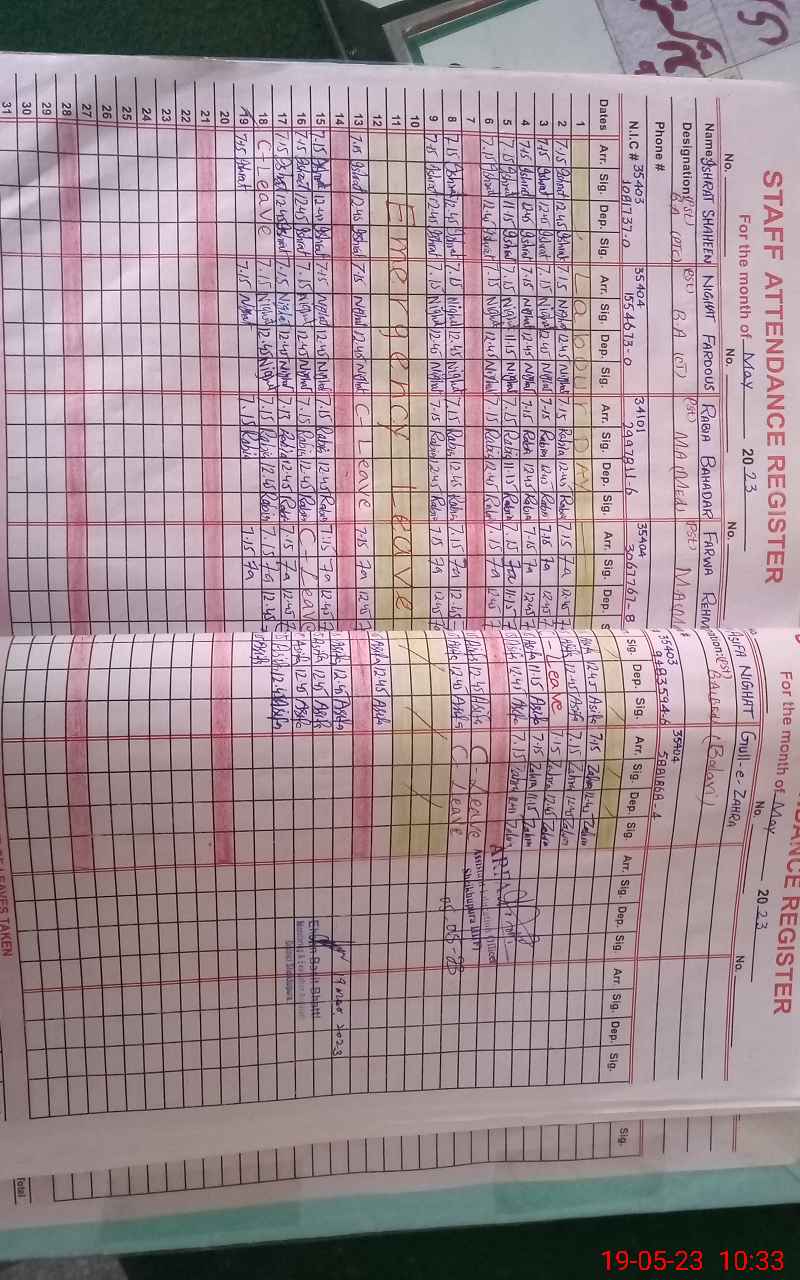 STAFF ATTENDANCE REGISTER
For the month of May 2023
No. No. No.
Name ISHRAT SHAHEEN NIGHAT FARDOUS RABIA BAHADAR FARWA
Designation (PST) BA (PTC) (PST) B.A (CT) (PST) MA (M.ed) (PST)
Phone #
N.I.C # 35403 35404 34101 35404
1081737-0 1554673-0 2997811-6 3067767-8
Dates Arr. Sig. Dep. Sig. Arr. Sig. Dep. Sig. Arr. Sig. Dep. Sig. Arr. Sig. Dep. S
1 Labour DAY
2 7.15 Ishrat 12.45 Ishrat 7.15 Nighat 12.45 Nighat 7.15 Rabia 12.45 Rabia 7.15 Fa 12.45
3 7.15 Ishrat 12.45 Ishrat 7.15 Nighat 12.45 Nighat 7.15 Rabia 12.45 Rabia 7.15 Fa 12.45
4 7.15 Ishrat 12.45 Ishrat 7.15 Nighat 12.45 Nighat 7.15 Rabia 12.45 Rabia 7.15 Fa 12.45
5 7.15 Ishrat 11.15 Ishrat 7.15 Nighat 11.15 Nighat 7.15 Rabia 11.15 Rabia 7.15 Fa 11.15
6 7.15 Ishrat 12.45 Ishrat 7.15 Nighat 12.45 Nighat 7.15 Rabia 12.45 Rabia 7.15 Fa 12.45
7
8 7.15 Ishrat 12.45 Ishrat 7.15 Nighat 12.45 Nighat 7.15 Rabia 12.45 Rabia 7.15 Fa 12.45
9 7.15 Ishrat 12.45 Ishrat 7.15 Nighat 12.45 Nighat 7.15 Rabia 12.45 Rabia 7.15 Fa 12.45
10
11 Emergency Leave
12
13 7.15 Ishrat 12.45 Ishrat 7.15 Nighat 12.45 Nighat C-Leave 7.15 Fa 12.45
14
15 7.15 Ishrat 12.45 Ishrat 7.15 Nighat 12.45 Nighat 7.15 Rabia 12.45 Rabia 7.15 Fa 12.45
16 7.15 Ishrat 12.45 Ishrat 7.15 Nighat 12.45 Nighat 7.15 Rabia 12.45 Rabia C-Leave
17 7.15 Ishrat 12.45 Ishrat 7.15 Nighat 12.45 Nighat 7.15 Rabia 12.45 Rabia 7.15 Fa 12.45
18 C-Leave 7.15 Nighat 12.45 Nighat 7.15 Rabia 12.45 Rabia 7.15 Fa 12.45
19 7.15 Ishrat 7.15 Nighat 7.15 Rabia 7.15 Fa
20
21
22
23
24
25
26
27
28
29
30
31
DANCE REGISTER
For the month of May 2023
No. No.
ASIFA NIGHAT Gull-e-ZAHRA
35403 35404
Sig. Dep. Sig. Arr. Sig. Dep. Sig. Arr. Sig. Dep. Sig. Arr. Sig. Dep. Sig. Sig.
Asifa 12.45 Asifa 7.15 Zahra 12.45 Zahra
Asifa 12.45 Asifa 7.15 Zahra 12.45 Zahra
C-Leave 7.15 Zahra 12.45 Zahra
Asifa 11.15 Asifa 7.15 Zahra 11.15 Zahra
Asifa 12.45 Asifa 7.15 Zahra Zahra
Asifa 12.45 Asifa C-Leave
Asifa 12.45 Asifa C-Leave
Asifa 12.45 Asifa
Asifa 12.45 Asifa
Asifa 12.45 Asifa
Asifa 12.45 Asifa
Asifa 12.45 Asifa
Asifa
19 May 2023
OF LEAVES TAKEN
Total
19-05-23 10:33